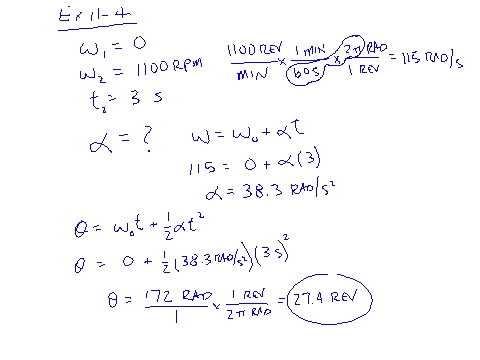 Ex 11-4
ω₁ = 0
ω₂ = 1100 RPM
t₂ = 3 s
1100 REV/MIN × 1 MIN/60 s × 2π RAD/1 REV = 115 RAD/s
α = ?
ω = ω₀ + αt
115 = 0 + α(3)
α = 38.3 RAD/s²
θ = ω₀t + ½αt²
θ = 0 + ½(38.3 RAD/s²)(3 s)²
θ = 172 RAD/1 × 1 REV/2π RAD = 27.4 REV